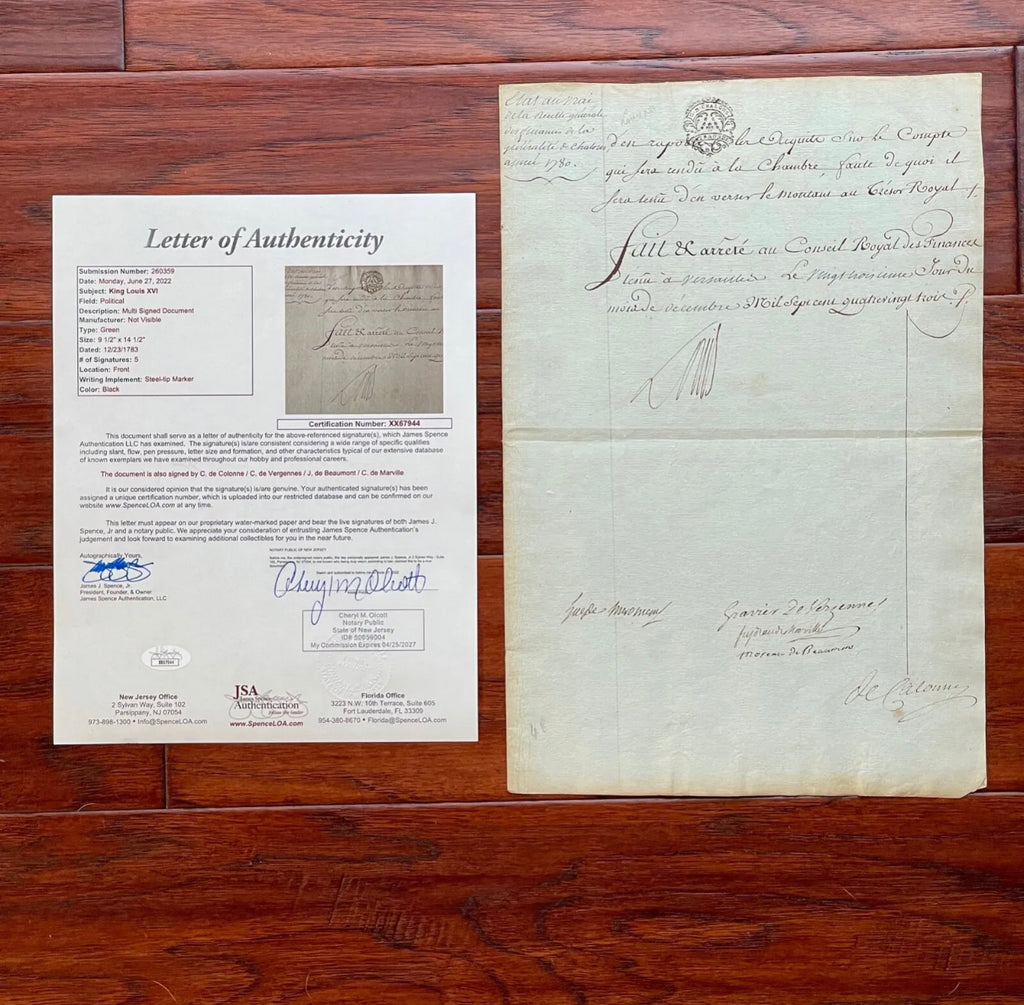 Letter of Authenticity
Submission Number: 260359
Date: Monday, June 27, 2022
Subject: King Louis XVI
Field: Political
Description: Multi Signed Document
Manufacturer: Not Visible
Type: Green
Size: 9 1/2" x 14 1/2"
Dated: 12/23/1783
# of Signatures: 5
Location: Front
Writing Implement: Steel-tip Marker
Color: Black
Certification Number: XX67944
This document shall serve as a letter of authenticity for the above-referenced signature(s), which James Spence
Authentication LLC has examined. The signature(s) is/are consistent considering a wide range of specific qualities
including slant, flow, pen pressure, letter size and formation, and other characteristics typical of our extensive database
of known exemplars we have examined throughout our hobby and professional careers.
The document is also signed by C. de Colonne / C. de Vergennes / J. de Beaumont / C. de Marville
It is our considered opinion that the signature(s) is/are genuine. Your authenticated signature(s) has been
assigned a unique certification number, which is uploaded into our restricted database and can be confirmed on our
website www.SpenceLOA.com at any time.
This letter must appear on our proprietary water-marked paper and bear the live signatures of both James J.
Spence, Jr and a notary public. We appreciate your consideration of entrusting James Spence Authentication's
judgement and look forward to examining additional collectibles for you in the near future.
Autographically Yours,
James J. Spence, Jr.
President, Founder, & Owner
James Spence Authentication, LLC
NOTARY PUBLIC OF NEW JERSEY
Cheryl M. Olcott
Cheryl M. Olcott
Notary Public
State of New Jersey
ID# 50059004
My Commission Expires 04/25/2027
XX67944
New Jersey Office
2 Sylvan Way, Suite 102
Parsippany, NJ 07054
973-898-1300 • Info@SpenceLOA.com
JSA
James Spence
Authentication
www.SpenceLOA.com
Florida Office
3223 N.W. 10th Terrace, Suite 605
Fort Lauderdale, FL 33309
954-380-8670 • Florida@SpenceLOA.com
Etat au vrai
de la recette générale
des finances de la
généralité de Chalons
année 1780.
d'en raporter les acquits sur le Compte
qui sera rendu à la Chambre, faute de quoi il
sera tenu d'en verser le montant au Trésor Royal
Fait & arrêté au Conseil Royal des Finances
tenu à Versailles Le vingt troisieme Jour du
mois de décembre Mil Sept cent quatrevingt trois
Louis
Gravier De Vergennes
feydeau de Marville
Moreau de Beaumont
De Calonne